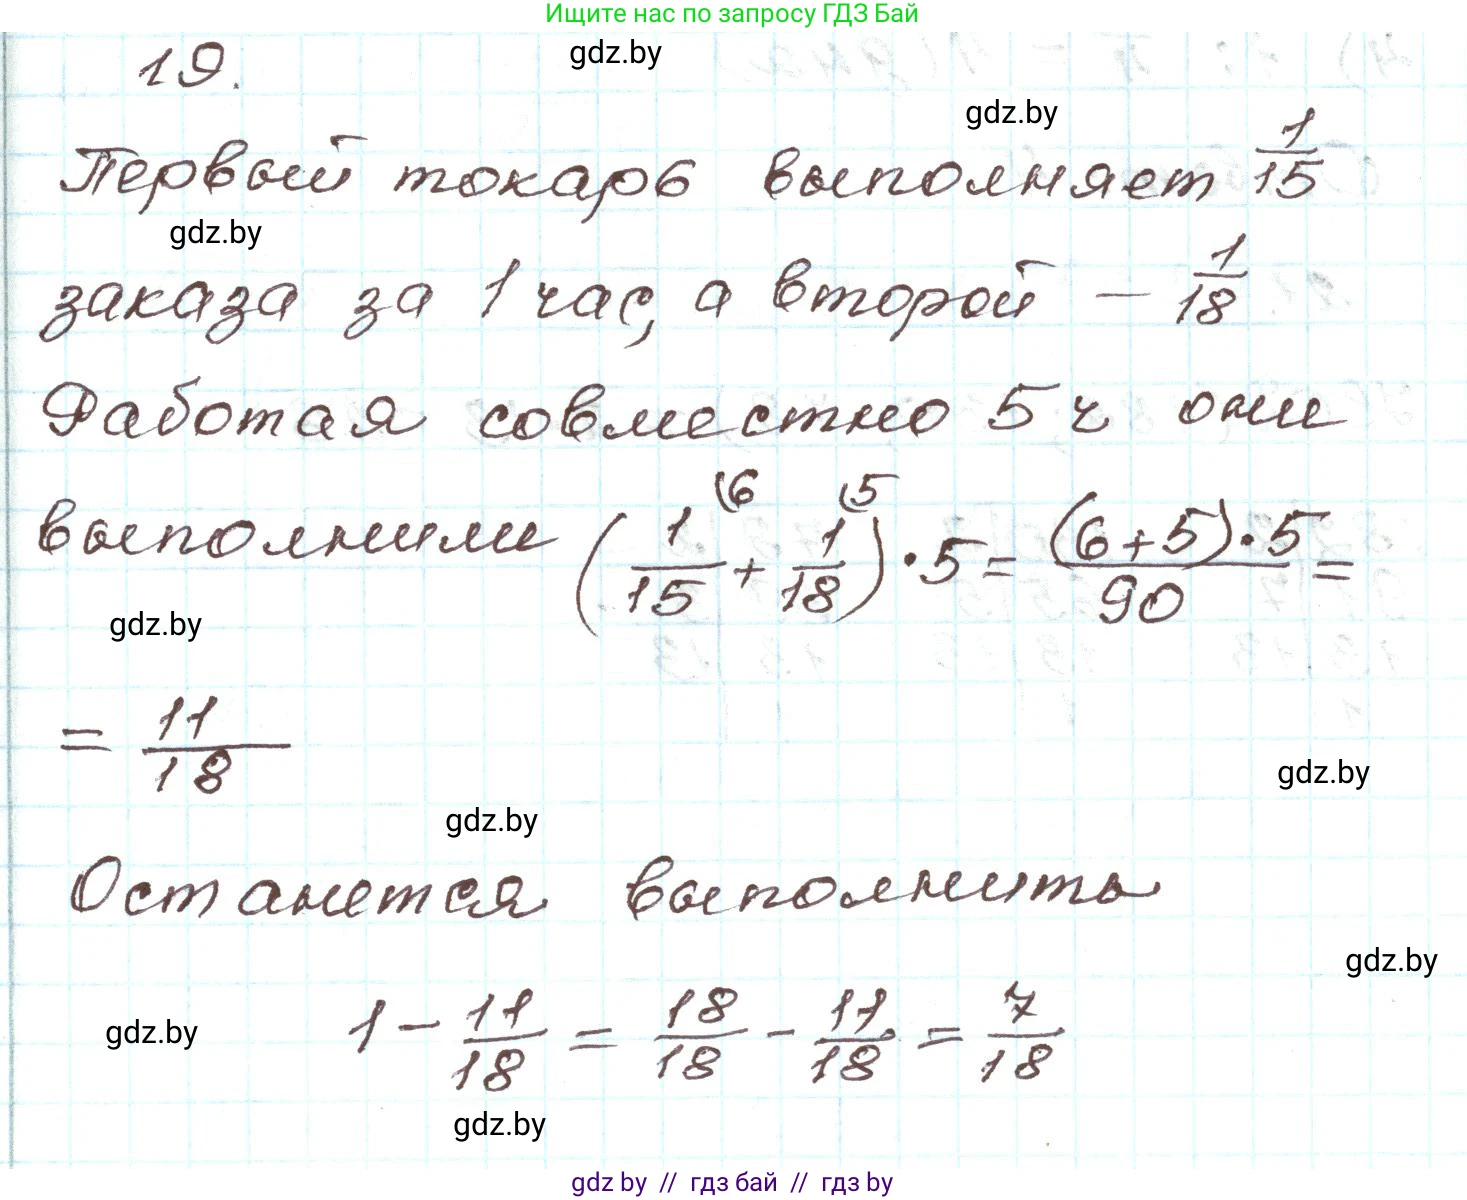 Ищите нас по запросу ГДЗ Бай
19.
gdz.by
gdz.by
Первый токарь выполняет 1/15
gdz.by
заказа за 1 час, а второй – 1/18
Работая совместно 5 ч они
выполнили (1/15 \6 + 1/18 \5) · 5 = (6+5)·5/90 =
gdz.by
= 11/18
gdz.by
gdz.by
Останется выполнить
gdz.by
1 – 11/18 = 18/18 – 11/18 = 7/18
gdz.by
gdz.by
gdz by // гдз бай // гдз by